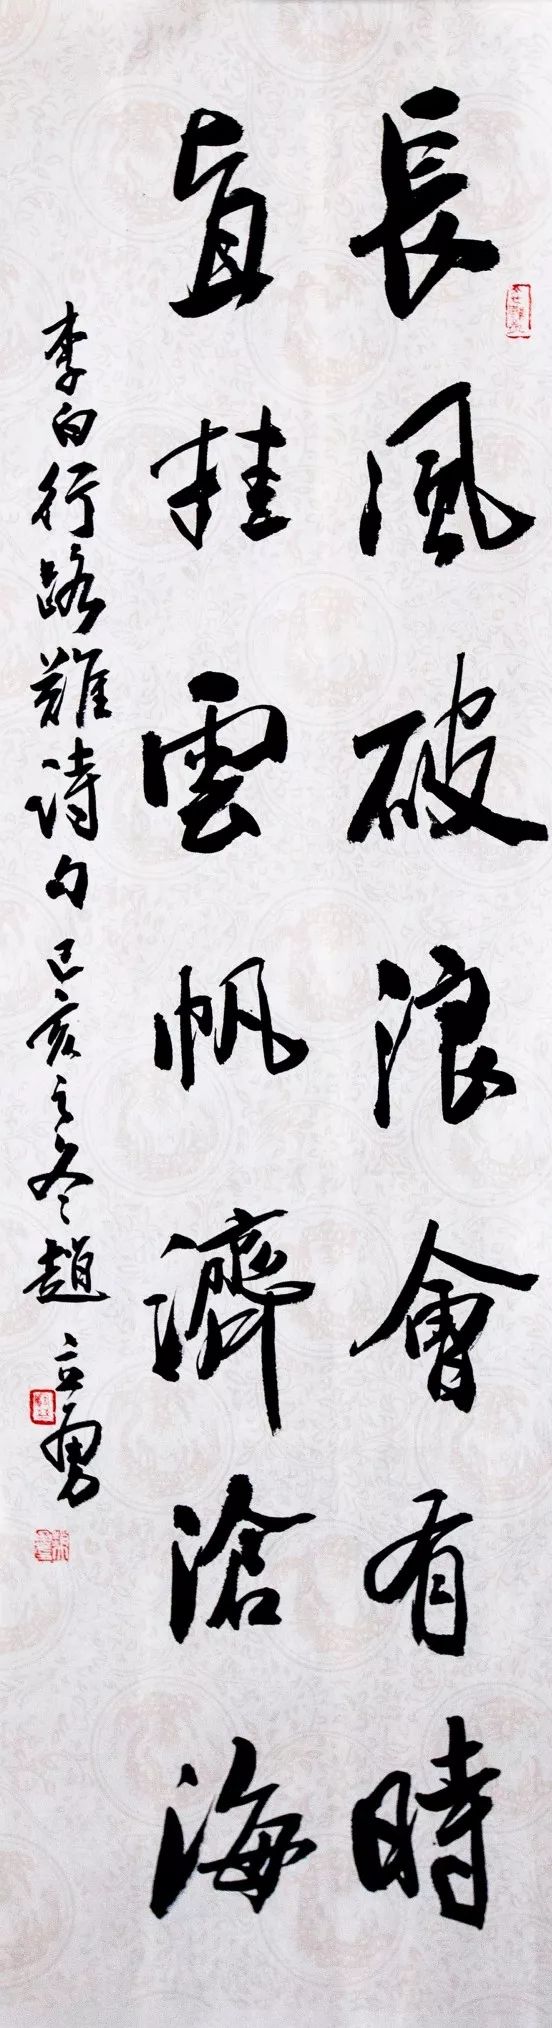 長風破浪會有時
直挂雲帆濟滄海
李白行路難詩句己亥之冬趙立勇